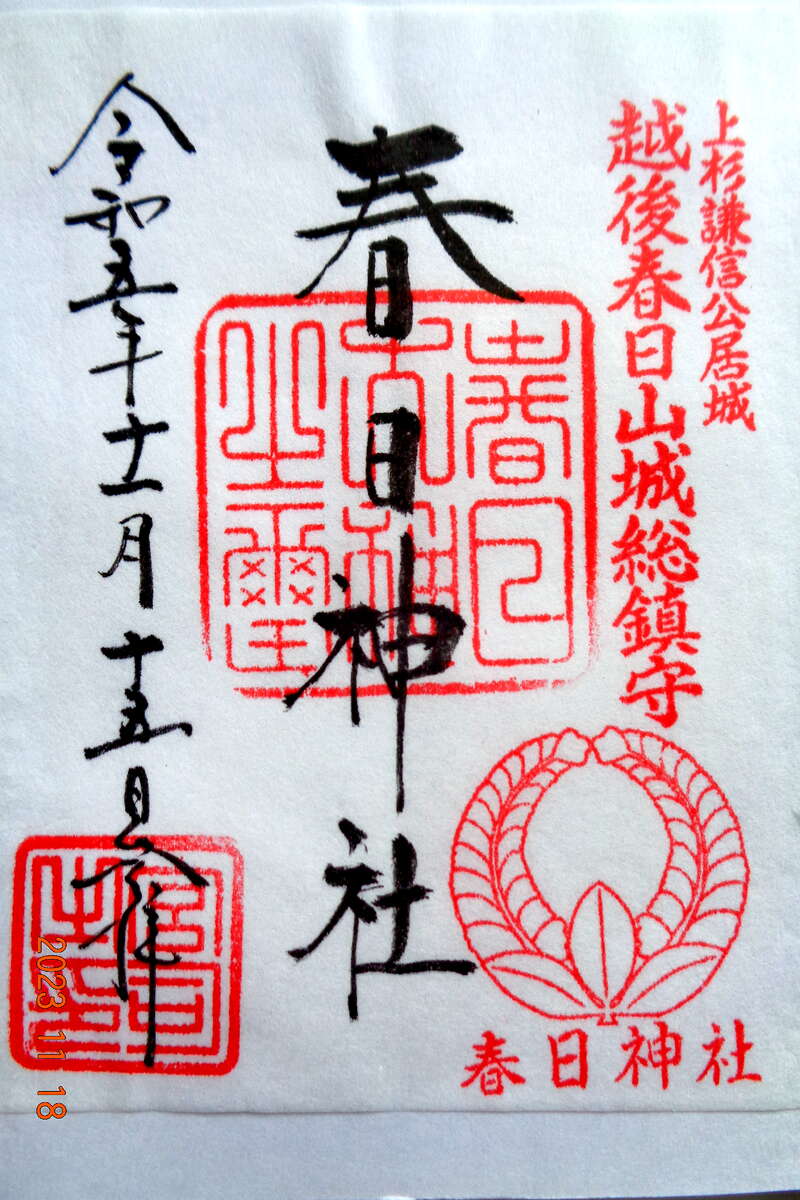 上杉謙信公居城
越後春日山城総鎮守
春日神社
春日神社
令和五年十一月十五日奉拝
2023 11 18